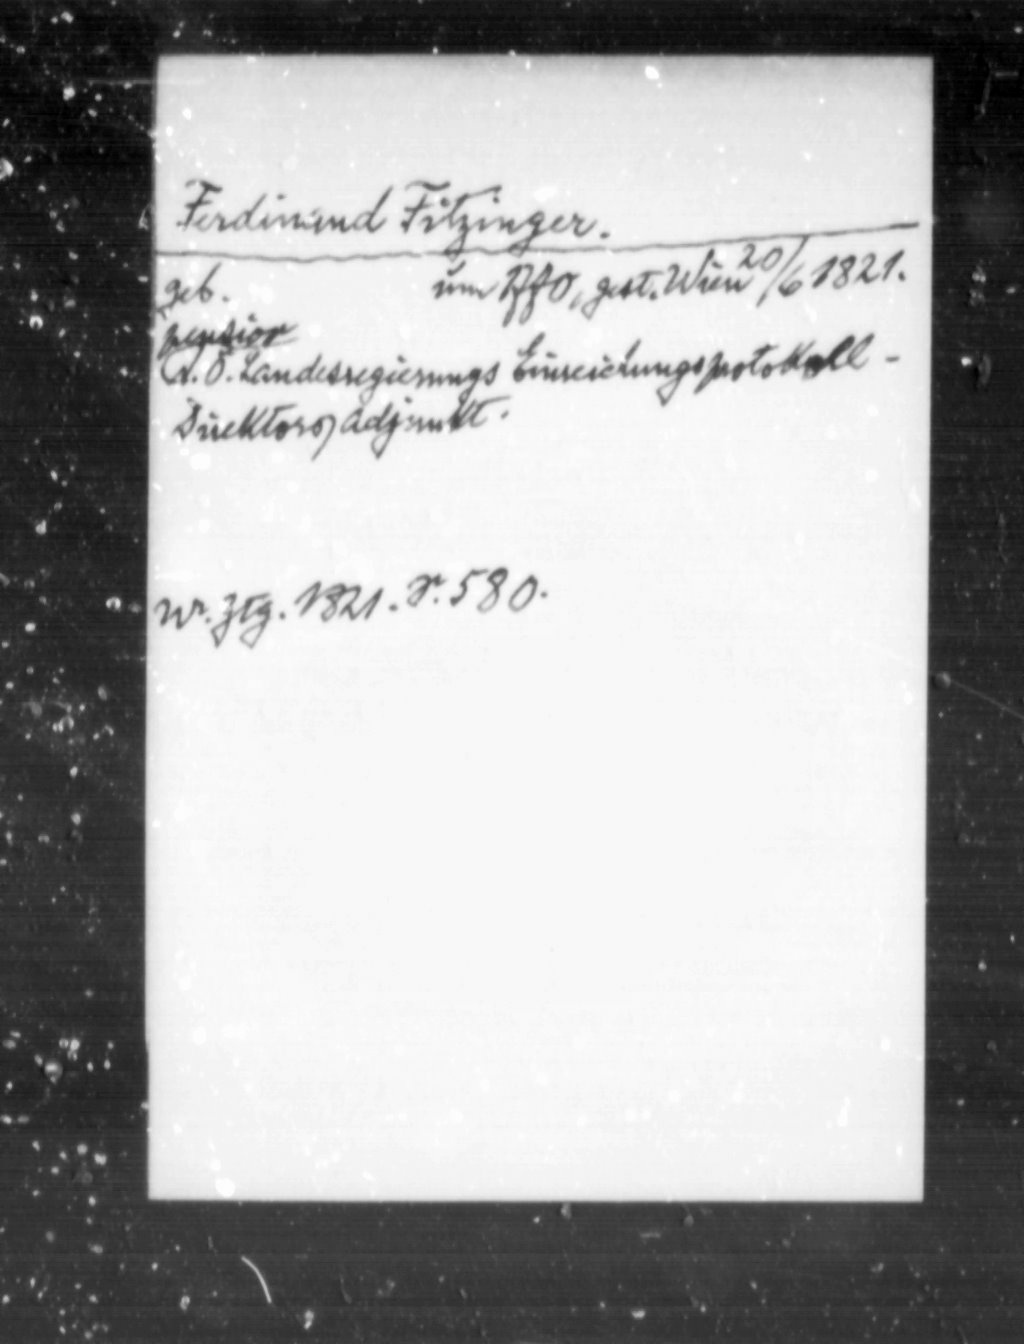 Ferdinand Fitzinger.
geb. um 1770, gest. Wien 20/6 1821.
pension
N.Ö. Landesregierungs Einreichungsprotokoll-
Direktors Adjunkt.
Wr. Ztg. 1821. S. 580.